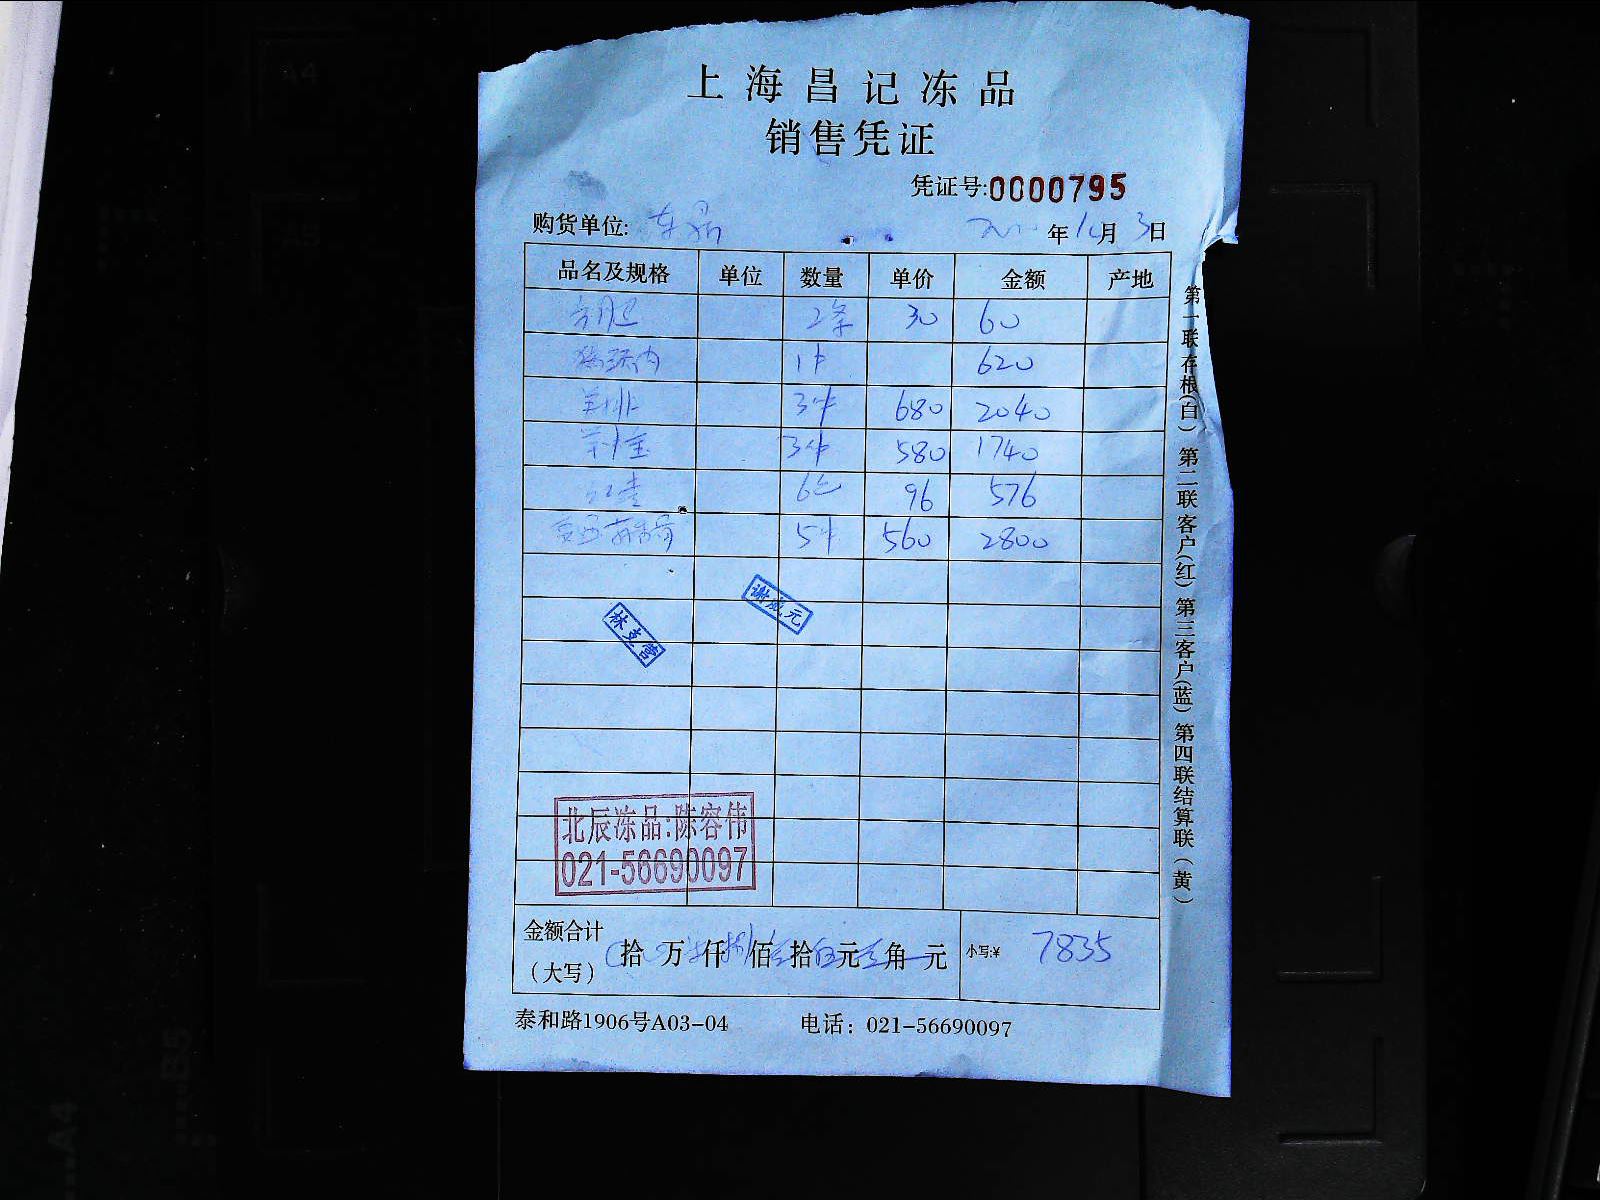 上海昌记冻品
销售凭证
凭证号:0000795
购货单位: 年 月 3日
品名及规格 单位 数量 单价 金额 产地
2条 30 60
1件 620
羊排 3件 680 2040
3件 580 1740
6 96 576
5件 560 2800
谢成元
林支营
北辰冻品:陈容伟
021-56690097
金额合计
(大写) 拾 万 仟 捌 佰 拾 伍 元 角 元 小写:¥ 7835
泰和路1906号A03-04 电话: 021-56690097
第一联存根(白) 第二联客户(红) 第三客户(蓝) 第四联结算联(黄)